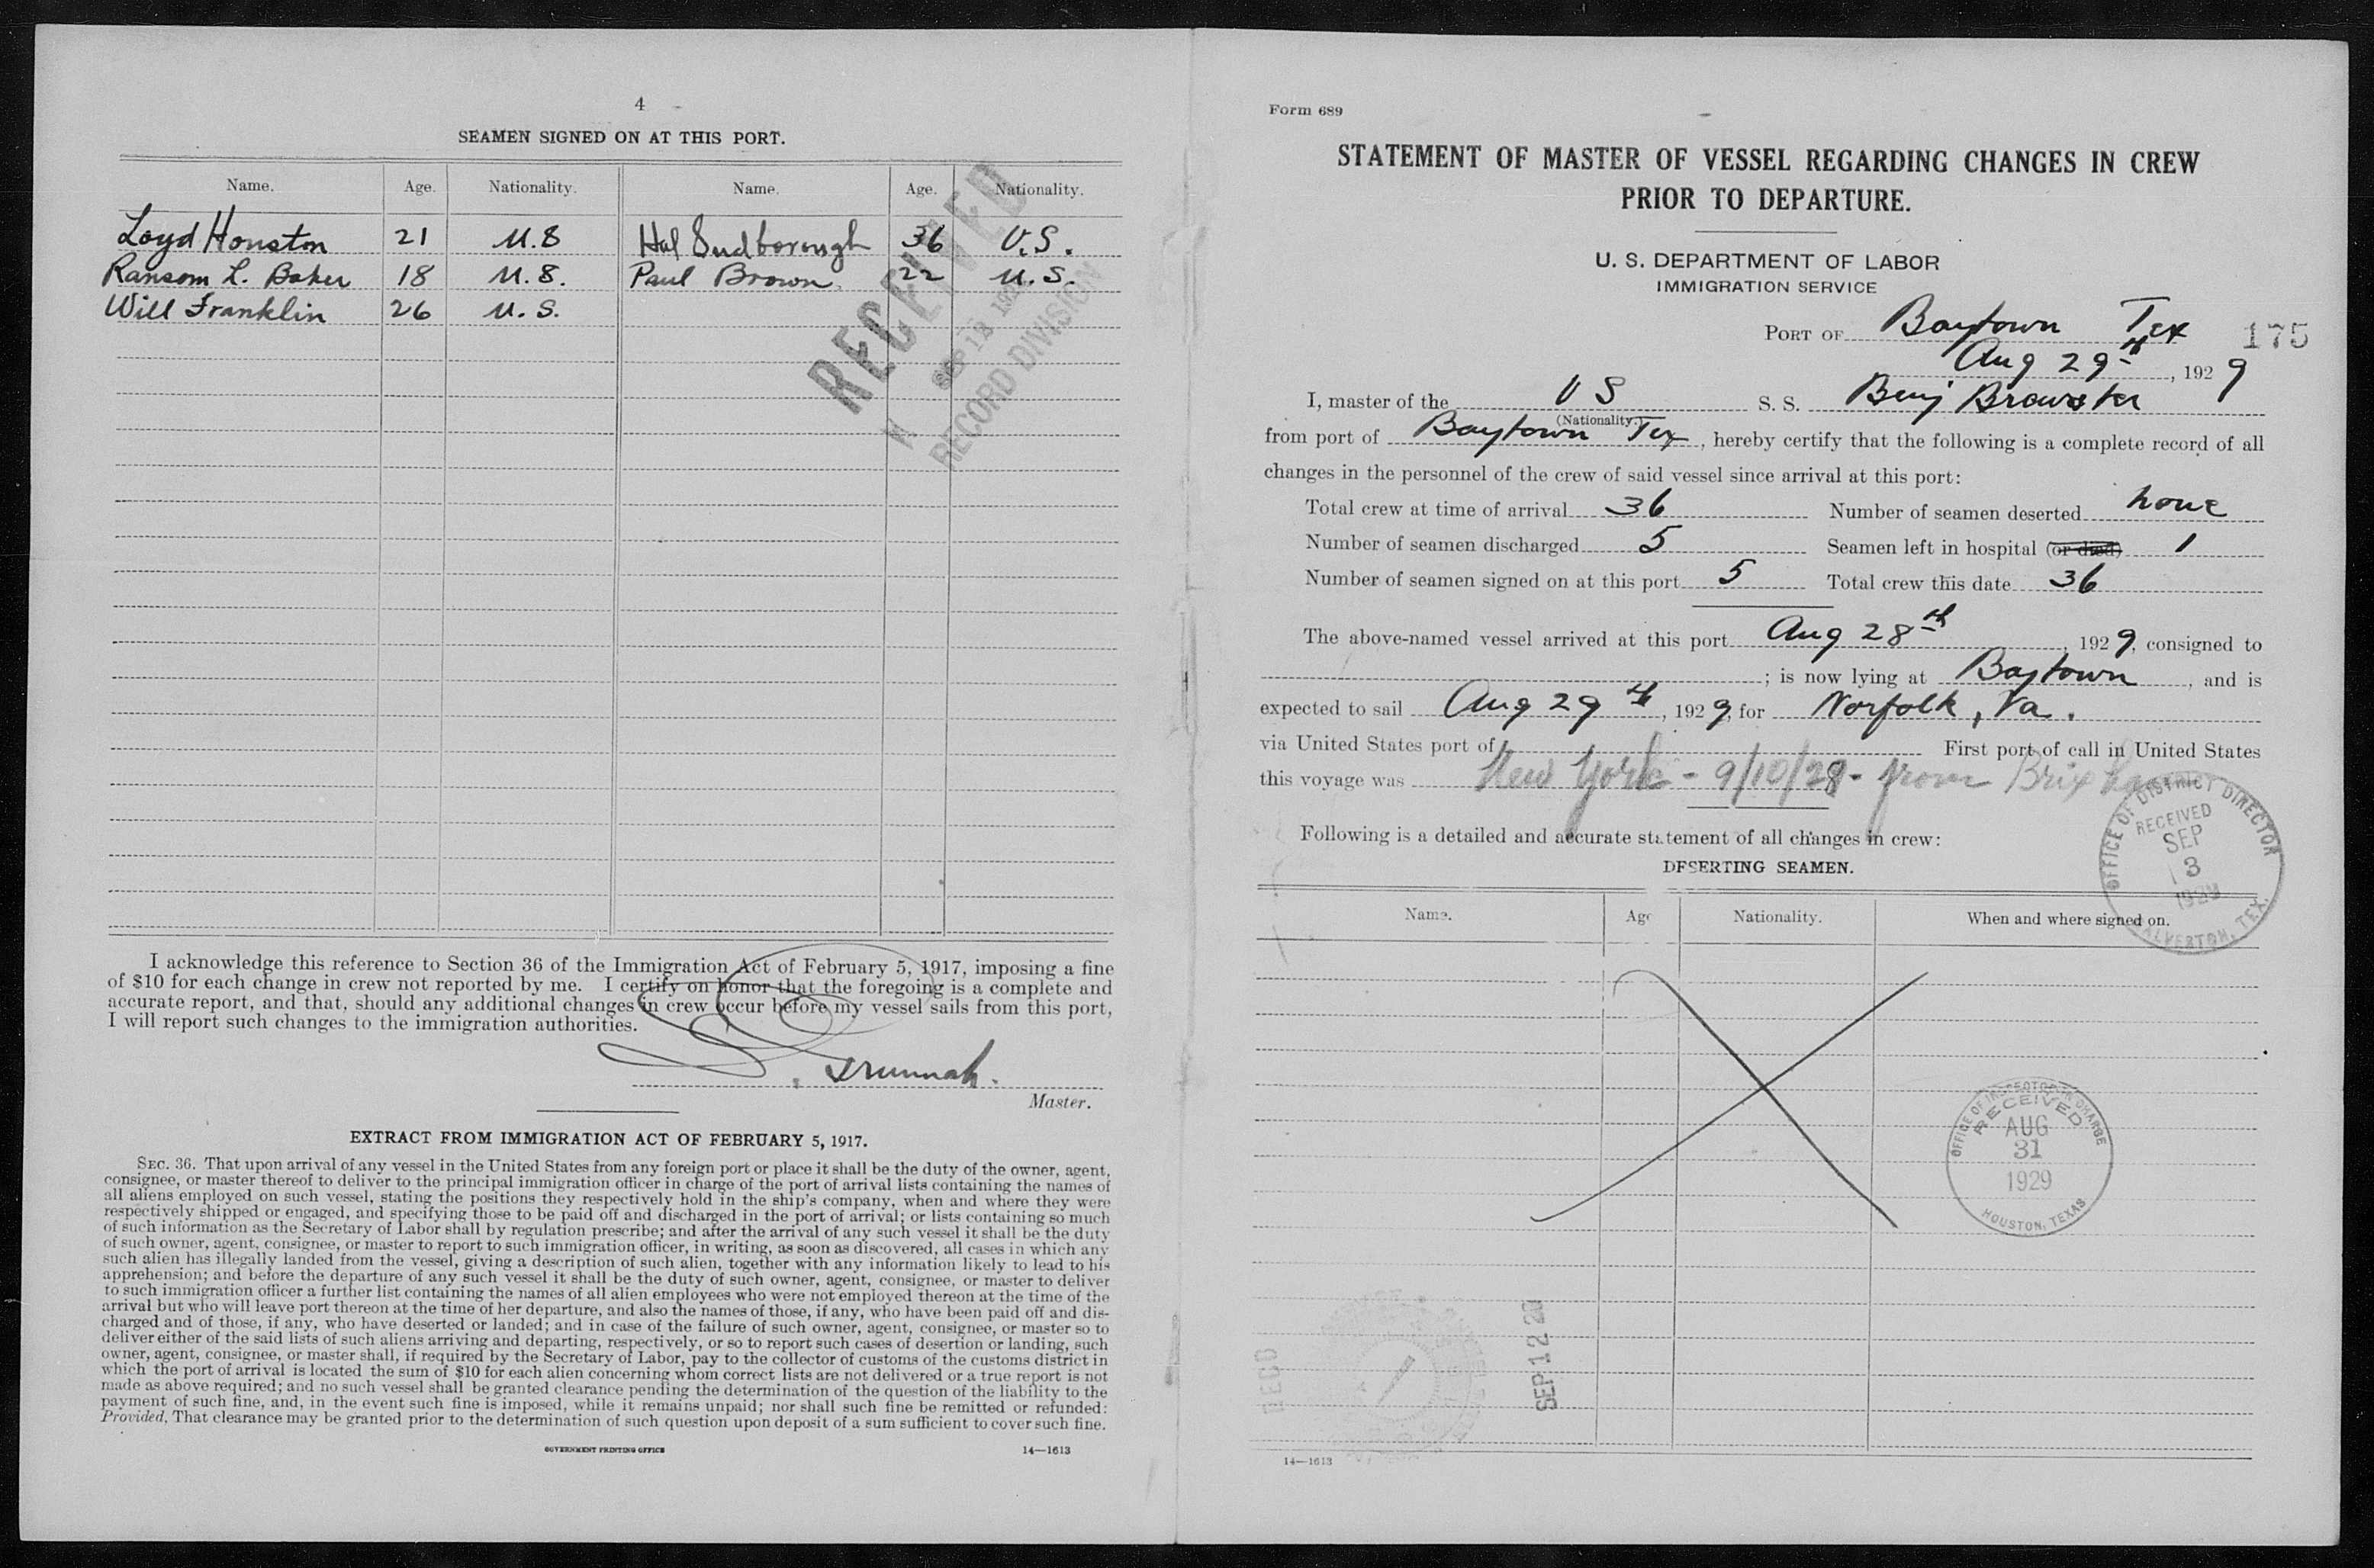 4
SEAMEN SIGNED ON AT THIS PORT.
Name. Age. Nationality. Name. Age. Nationality.
Loyd Houston 21 U.S Hal Sudborough 36 U.S.
Ransom L. Baker 18 U.S. Paul Brown 22 U.S.
Will Franklin 26 U.S.
RECEIVED
SEP 12
RECORD DIVISION
I acknowledge this reference to Section 36 of the Immigration Act of February 5, 1917, imposing a fine
of $10 for each change in crew not reported by me. I certify on honor that the foregoing is a complete and
accurate report, and that, should any additional changes in crew occur before my vessel sails from this port,
I will report such changes to the immigration authorities.
Master.
EXTRACT FROM IMMIGRATION ACT OF FEBRUARY 5, 1917.
SEC. 36. That upon arrival of any vessel in the United States from any foreign port or place it shall be the duty of the owner, agent,
consignee, or master thereof to deliver to the principal immigration officer in charge of the port of arrival lists containing the names of
all aliens employed on such vessel, stating the positions they respectively hold in the ship's company, when and where they were
respectively shipped or engaged, and specifying those to be paid off and discharged in the port of arrival; or lists containing so much
of such information as the Secretary of Labor shall by regulation prescribe; and after the arrival of any such vessel it shall be the duty
of such owner, agent, consignee, or master to report to such immigration officer, in writing, as soon as discovered, all cases in which any
such alien has illegally landed from the vessel, giving a description of such alien, together with any information likely to lead to his
apprehension; and before the departure of any such vessel it shall be the duty of such owner, agent, consignee, or master to deliver
to such immigration officer a further list containing the names of all alien employees who were not employed thereon at the time of the
arrival but who will leave port thereon at the time of her departure, and also the names of those, if any, who have been paid off and dis-
charged and of those, if any, who have deserted or landed; and in case of the failure of such owner, agent, consignee, or master so to
deliver either of the said lists of such aliens arriving and departing, respectively, or so to report such cases of desertion or landing, such
owner, agent, consignee, or master shall, if required by the Secretary of Labor, pay to the collector of customs of the customs district in
which the port of arrival is located the sum of $10 for each alien concerning whom correct lists are not delivered or a true report is not
made as above required; and no such vessel shall be granted clearance pending the determination of the question of the liability to the
payment of such fine, and, in the event such fine is imposed, while it remains unpaid; nor shall such fine be remitted or refunded:
Provided, That clearance may be granted prior to the determination of such question upon deposit of a sum sufficient to cover such fine.
GOVERNMENT PRINTING OFFICE 14—1613
Form 689
STATEMENT OF MASTER OF VESSEL REGARDING CHANGES IN CREW
PRIOR TO DEPARTURE.
U. S. DEPARTMENT OF LABOR
IMMIGRATION SERVICE
PORT OF Baytown Tex 175
Aug 29th, 1929
I, master of the U S S. S. Benj Brewster
(Nationality.)
from port of Baytown Tex, hereby certify that the following is a complete record of all
changes in the personnel of the crew of said vessel since arrival at this port:
Total crew at time of arrival 36 Number of seamen deserted none
Number of seamen discharged 5 Seamen left in hospital (or died) 1
Number of seamen signed on at this port 5 Total crew this date 36
The above-named vessel arrived at this port Aug 28th, 1929, consigned to
; is now lying at Baytown, and is
expected to sail Aug 29th, 1929, for Norfolk, Va.
via United States port of First port of call in United States
this voyage was New York - 9/10/28 - from Brixham
Following is a detailed and accurate statement of all changes in crew:
DESERTING SEAMEN.
OFFICE OF DISTRICT DIRECTOR
RECEIVED
SEP
3
1929
GALVESTON, TEX.
Name. Age Nationality. When and where signed on.
OFFICE OF INSPECTOR IN CHARGE
RECEIVED
AUG
31
1929
HOUSTON, TEXAS
SEP 12
14—1613